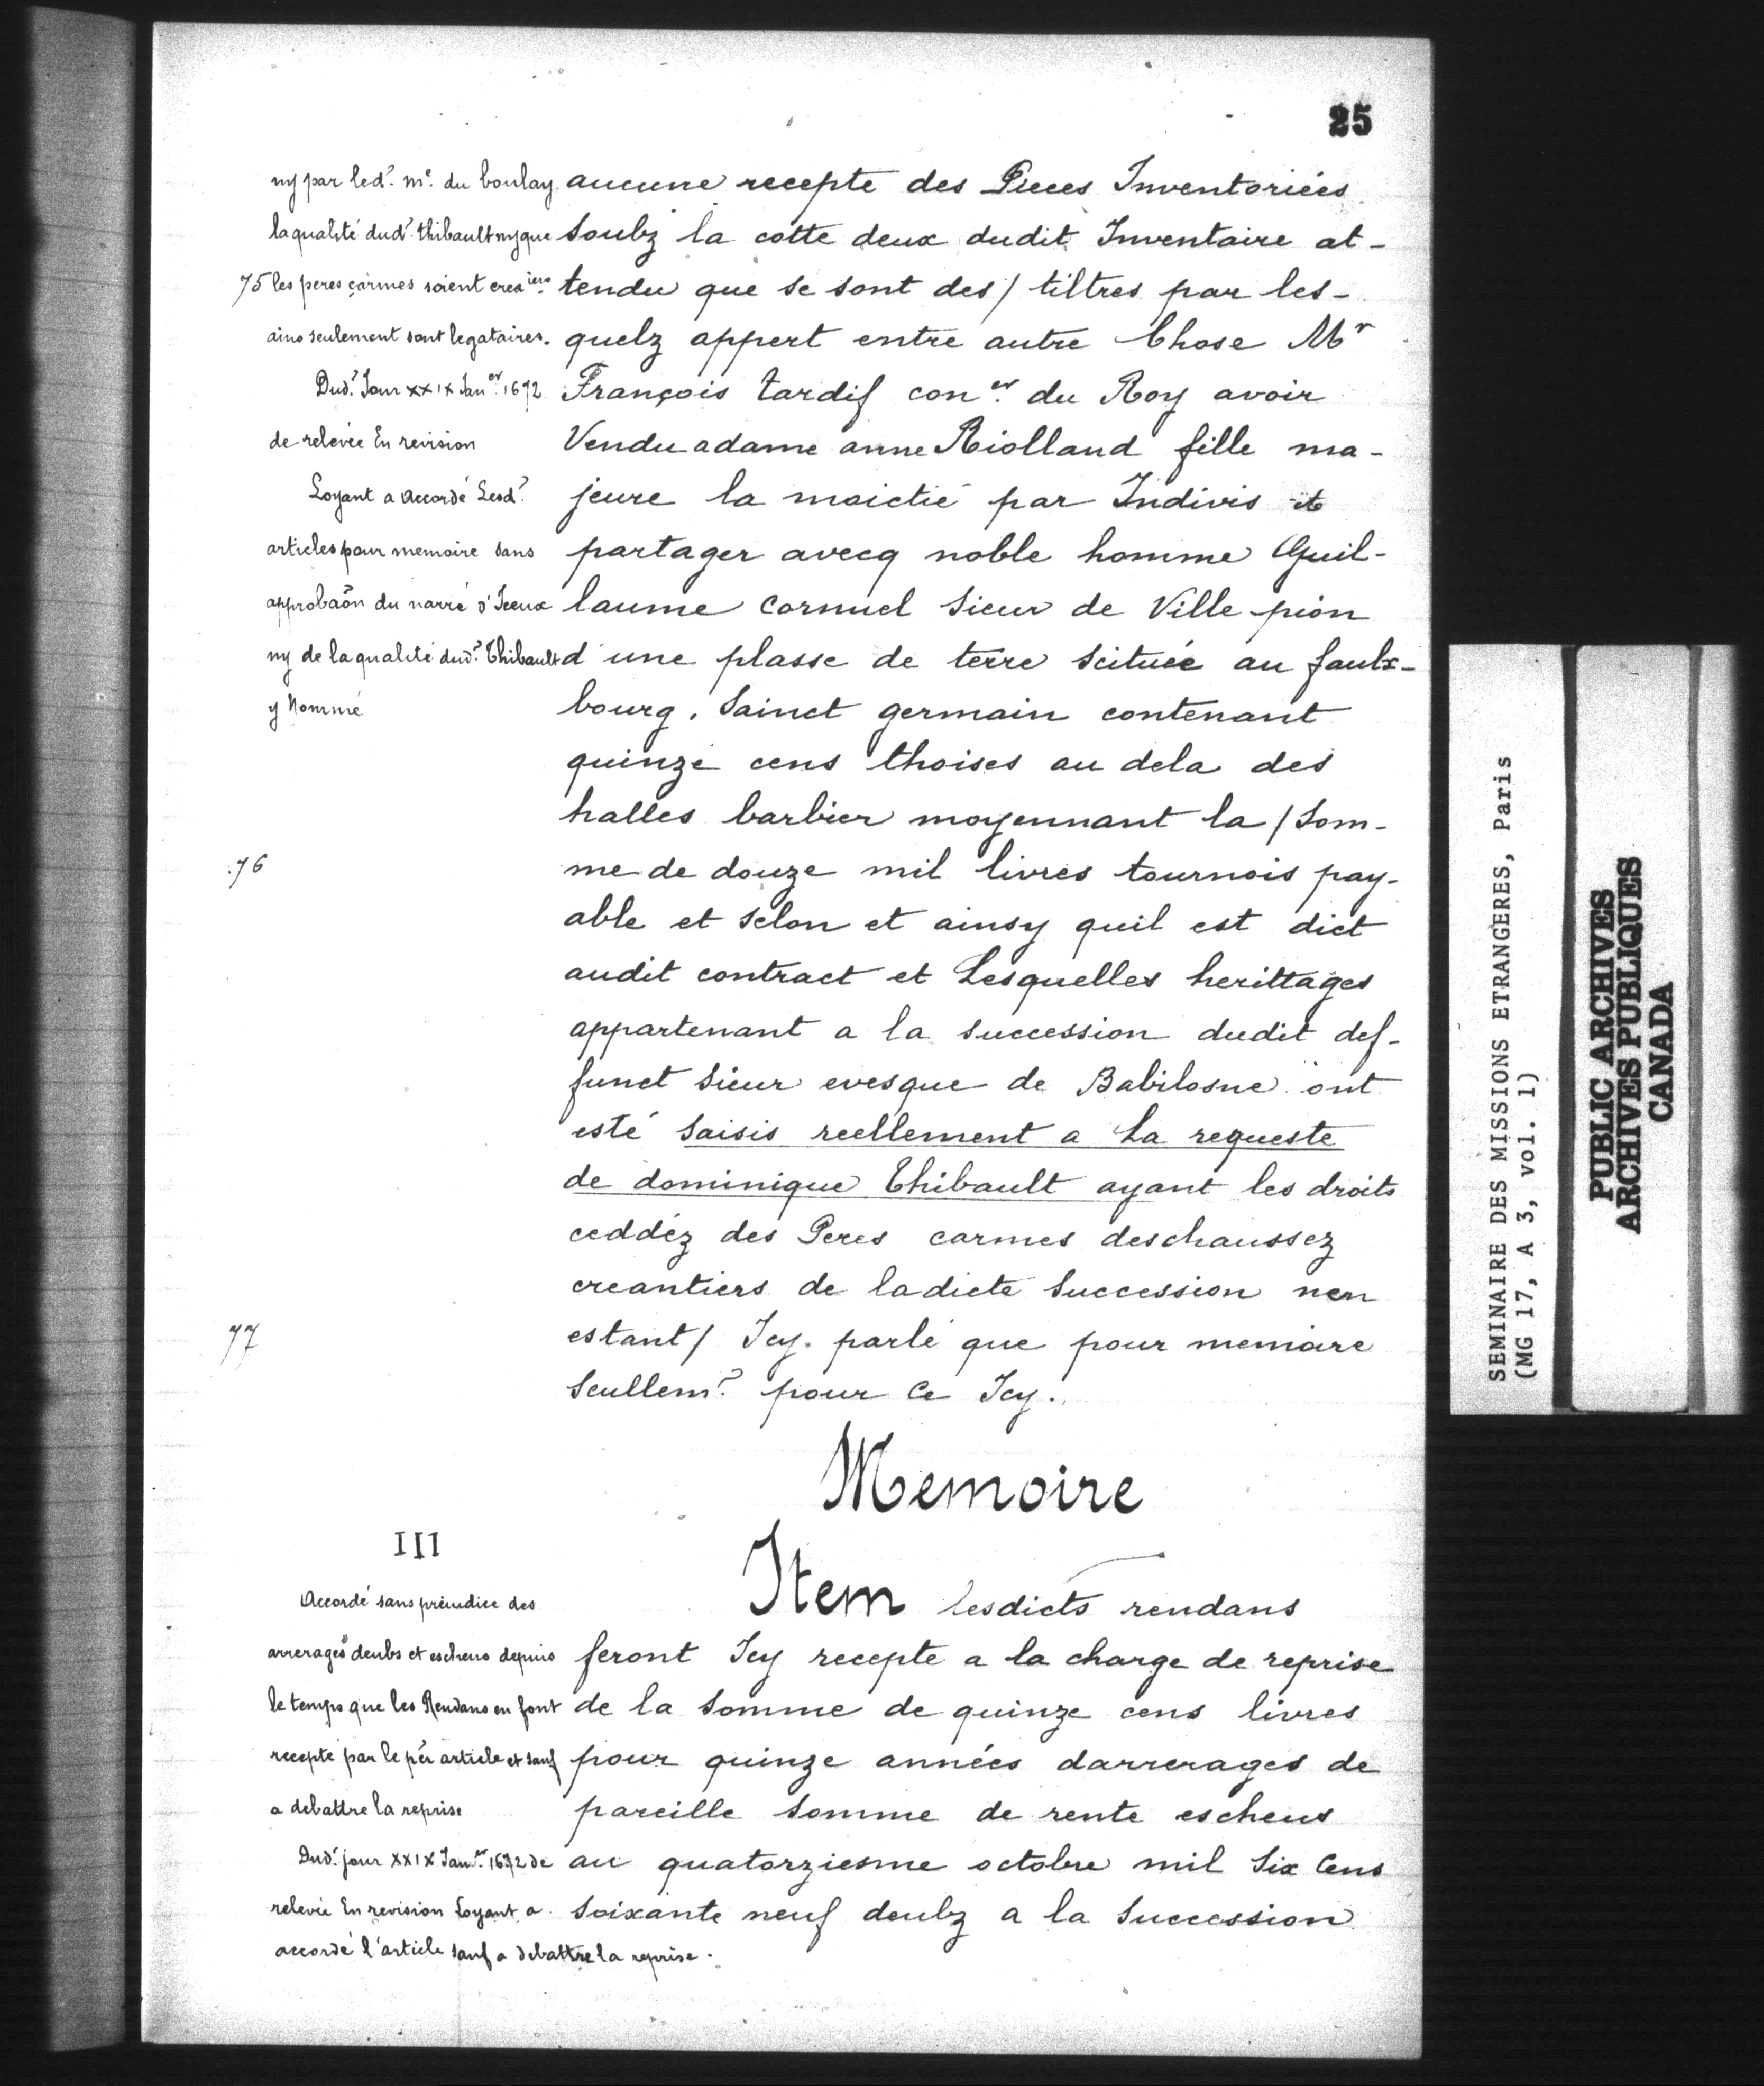 25
ny par led? me. du boulay
la qualité dud? thibault ny que
75 les peres carmes soient creaiers
ains seulement sont legataires.
Dud? Jour XXIX Janer. 1672
de relevée En revision
Loyant a accordé Lesd?
articles pour memoire sans
approbaõn du narré d'Iceux
ny de la qualité dud? Thibault
y Nommé
aucune recepte des Pieces Inventoriées
soubz la cotte deux dudit Inventaire at-
tendu que se sont des / tiltres par les-
quelz appert entre autre Chose Mr
François tardif coner. du Roy avoir
Vendu adame anne Riolland fille ma-
jeure la moictié par Indivis et
partager avecq noble homme Guil-
laume cornuel Sieur de Ville pion
d'une plasse de terre scituée au faulx-
bourg. Sainct germain contenant
quinze cens thoises au dela des
halles barbier moyennant la / Som-
76
me de douze mil livres tournois pay-
able et selon et ainsy quil est dict
audit contract et Lesquelles herittages
appartenant a la succession dudit def-
funct Sieur evesque de Babilosne ont
esté saisis reellement a La requeste
de dominique Thibault ayant les droits
ceddéz des Peres carmes deschaussez
creantiers de ladicte Succession nen
77
estant / Icy. parlé que pour memoire
Seullem? pour Ce Icy.
Memoire
III
Accordé sans préiudice des
arrerages deubs et escheus depuis
le temps que les Rendans en font
recepte par le pñt article et sauf
a debattre la reprise
Dud. jour XXIX Janer. 1672 de
relevée En revision Loyant a
accordé l'article sauf a debattre la reprise.
Item lesdicts rendans
feront Icy recepte a la charge de reprise
de la Somme de quinze cens livres
pour quinze années darrerages de
pareille somme de rente escheus
au quatorziesme octobre mil Six Cens
Soixante neuf deubz a la Succession
SEMINAIRE DES MISSIONS ETRANGERES, Paris
(MG 17, A 3, vol. 1)
PUBLIC ARCHIVES
ARCHIVES PUBLIQUES
CANADA